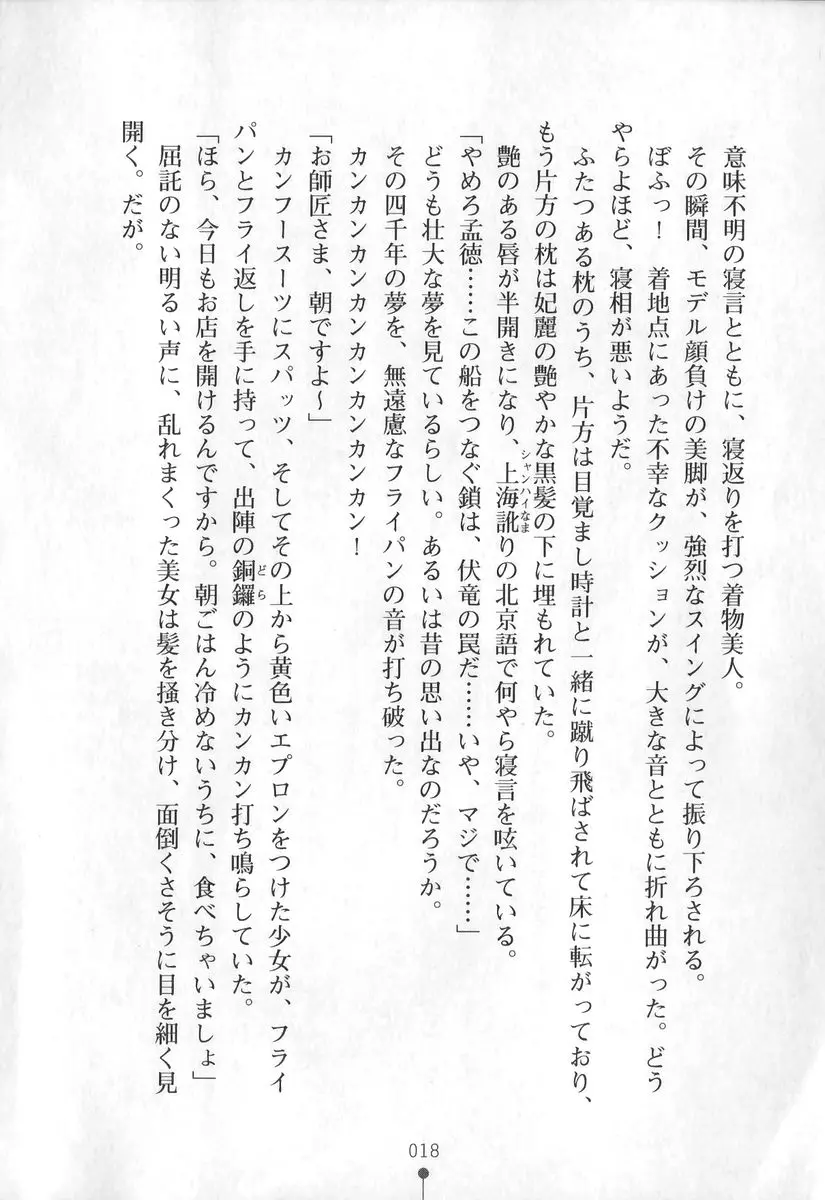 意味不明の寝言とともに、寝返りを打つ着物美人。
その瞬間、モデル顔負けの美脚が、強烈なスイングによって振り下ろされる。
ぼふっ！　着地点にあった不幸なクッションが、大きな音とともに折れ曲がった。どう
やらよほど、寝相が悪いようだ。
ふたつある枕のうち、片方は目覚まし時計と一緒に蹴り飛ばされて床に転がっており、
もう片方の枕は妃麗の艶やかな黒髪の下に埋もれていた。
艶のある唇が半開きになり、上海訛りの北京語で何やら寝言を呟いている。
シャンハイなま
「やめろ孟徳……この船をつなぐ鎖は、伏竜の罠だ……いや、マジで……」
どうも壮大な夢を見ているらしい。あるいは昔の思い出なのだろうか。
その四千年の夢を、無遠慮なフライパンの音が打ち破った。
カンカンカンカンカンカンカンカン！
「お師匠さま、朝ですよ〜」
カンフースーツにスパッツ、そしてその上から黄色いエプロンをつけた少女が、フライ
パンとフライ返しを手に持って、出陣の銅鑼のようにカンカン打ち鳴らしていた。
どら
「ほら、今日もお店を開けるんですから。朝ごはん冷めないうちに、食べちゃいましょ」
屈託のない明るい声に、乱れまくった美女は髪を掻き分け、面倒くさそうに目を細く見
開く。だが。
018